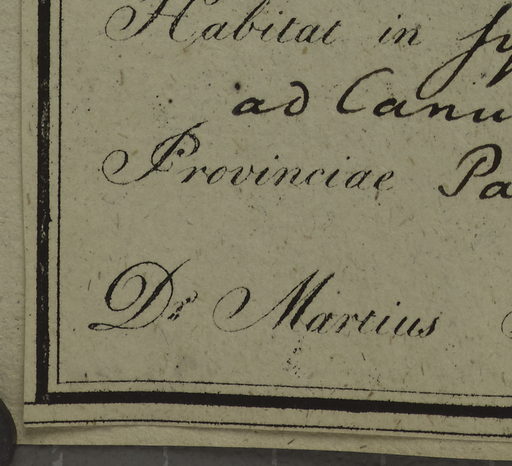 Habitat in
ad
Provinciae
Dr. Martius